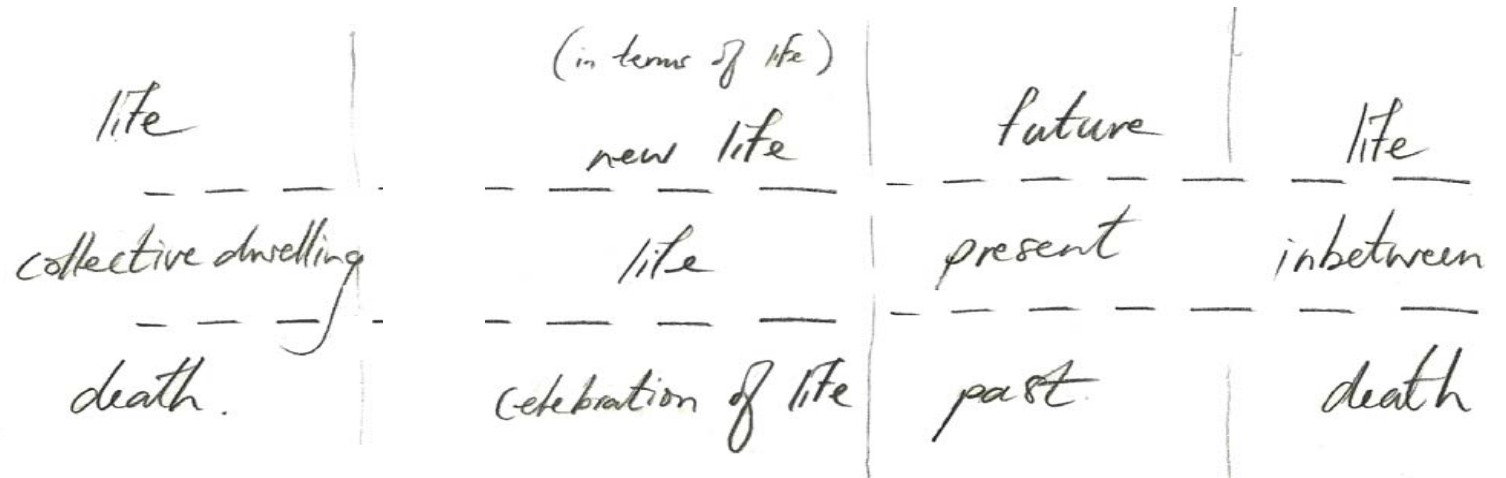 (in terms of life)
life new life future life
collective dwelling life present inbetween
death. celebration of life past death